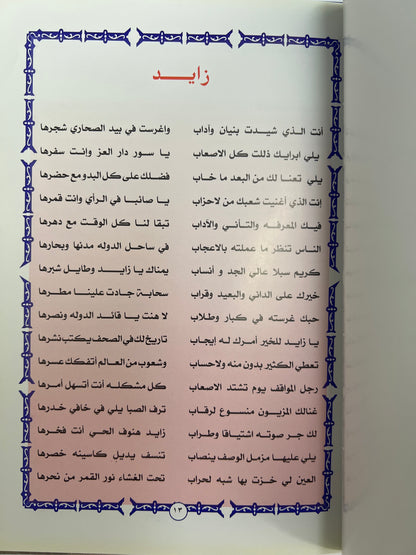 زايـــد
أنت الـذي شيــدت بنيان وآداب واغرست في بيد الصحاري شجرها
يلي ابرايك ذللت كل الاصعاب يا سور دار العز وإنت سفرها
يلي تعنا لك من البعد ما خاب فضلك على كل البدو مع حضرها
انت الذي أغنيت شعبك من لاحزاب يا صائبا في الرأي وانت قمرها
فيك المعرفه والتأني والآداب تبقا لنا كل الوقت مع دهرها
الناس تنظر ما عملته بالاعجاب في ساحل الدوله مدنها وبحارها
كريم سبلا عالي الجد و أنساب يمناك يا زايـد وطايل شبرها
خيرك على الداني والبعيد وقراب سحابة جادت علينا مطرها
حبك غرسته في كبار وطلاب لا هنت يا قائد الدوله ونصرها
يا زايد للخير أمرك له إيجاب تاريخ لك في الصحف يكتب نشرها
تعطي الكثير بدون منه ولاحساب وشعوب من العالم أتفكك عسرها
رجل المواقف يوم تشتد الاصعاب كل مشكله أنت اتسهل أمرها
غنالك المزيون منسوع لرقاب ترف الصبا يلي في خافي خدرها
لك جر صوته اشتياقا وطراب زايد هنوف الحي أنت فخرها
يلي عليها مزمل الوصف ينصاب تنسف يديل كاسينه خصرها
العين لي خزت بها شبه لحراب تحت الغشاء نور القمر من نحرها
١٣